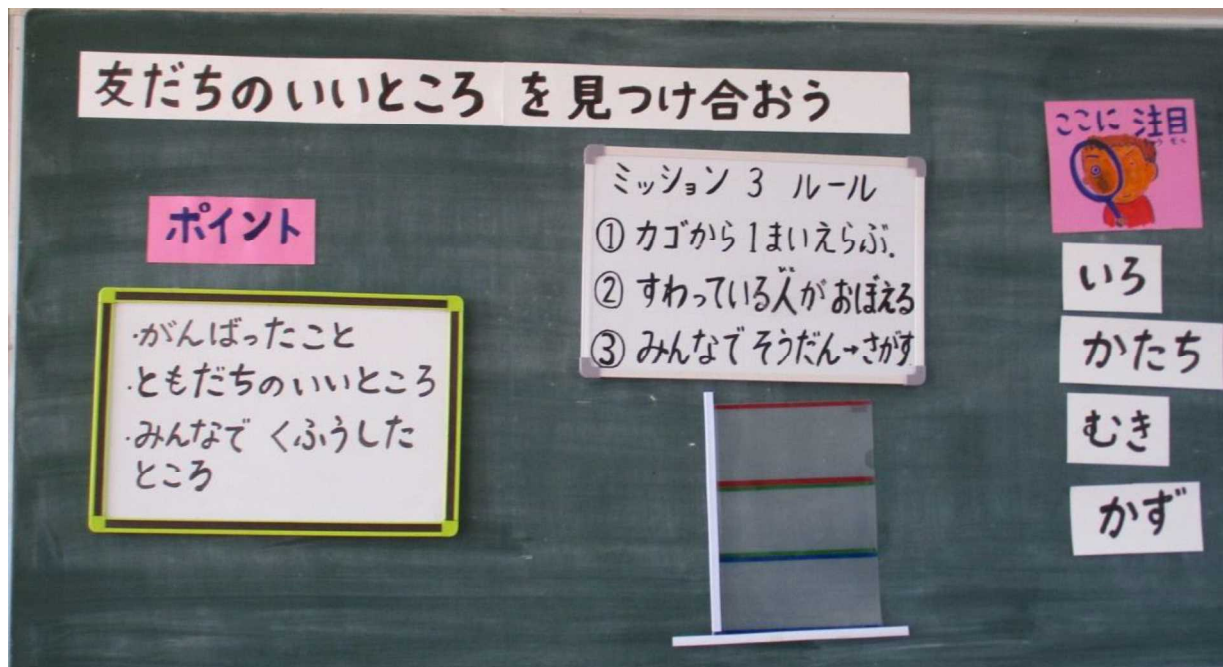 友だちのいいところ を見つけ合おう
ポイント
・がんばったこと
・ともだちのいいところ
・みんなで くふうした
ところ
ミッション 3 ルール
① カゴから 1まいえらぶ.
② すわっている人が おぼえる
③ みんなで そうだん→さがす
ここに 注目
いろ
かたち
むき
かず